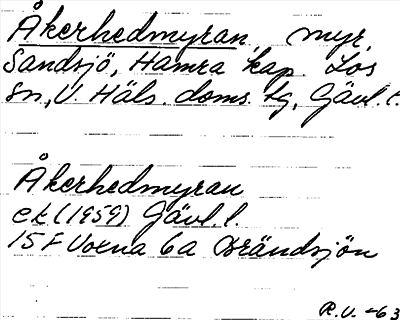 Åkerhedmyran, myr,
Sandsjö, Hamra kap. Lös
sn., V. Häls. doms. tg, Gävl. l.
Åkerhedmyran
ek (1959) Gävl. l.
15 F Voxna 6a Brändsjön
R.V. -63